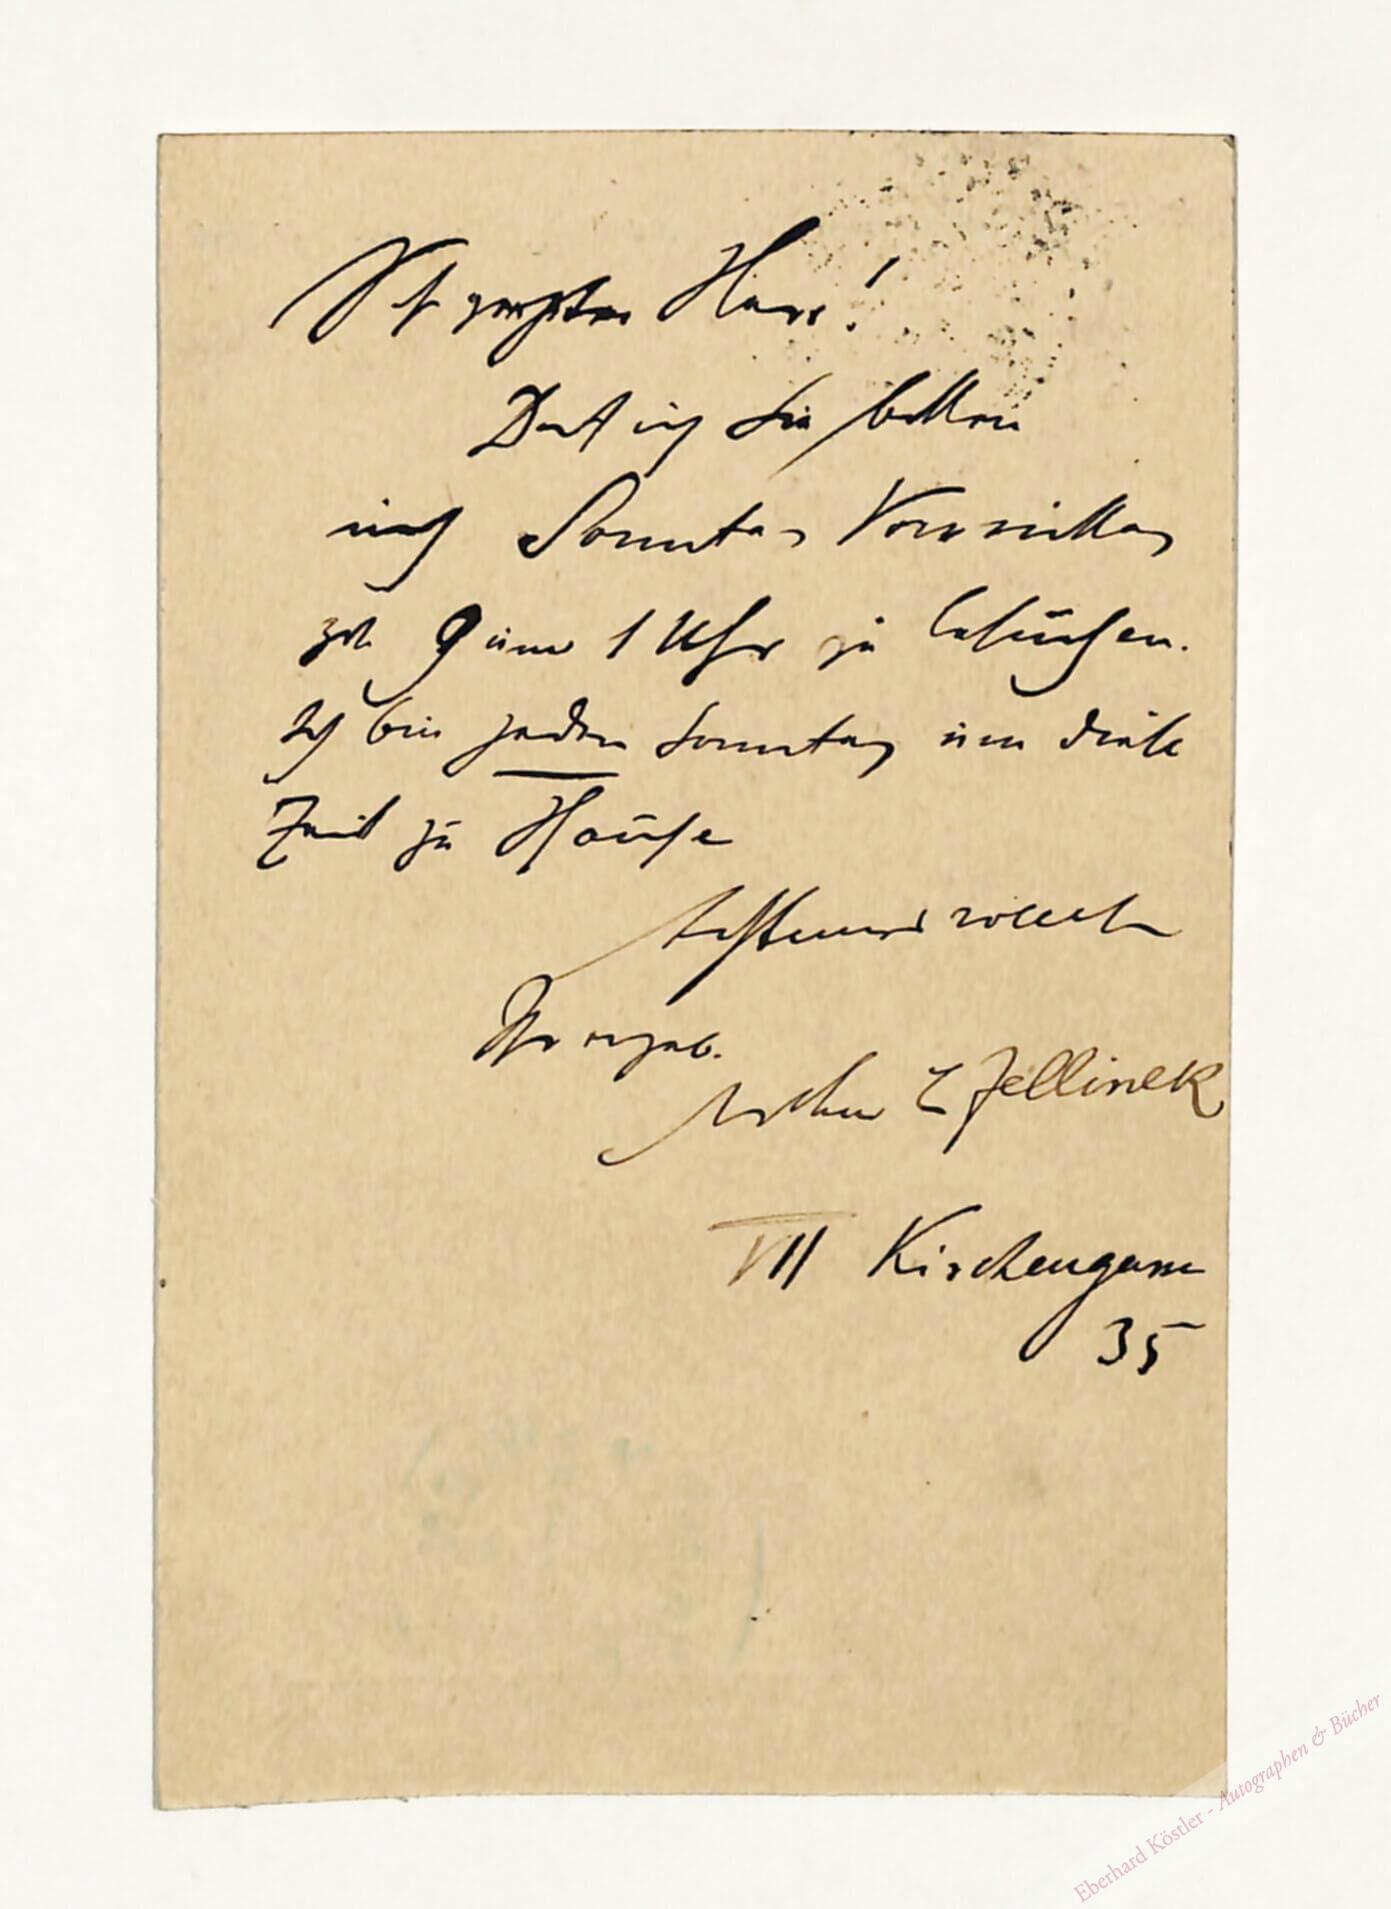 Sehr geehrter Herr!
Darf ich Sie bitten
mich Sonntag Vormittag
9 um 1 Uhr zu besuchen.
Ich bin jeden Sonntag um diese
Zeit zu Hause
Achtungsvoll
Ihr ergeb.
Arthur L Jellinek
VII Kirchengasse
35
Eberhard Köstler - Autographen & Bücher